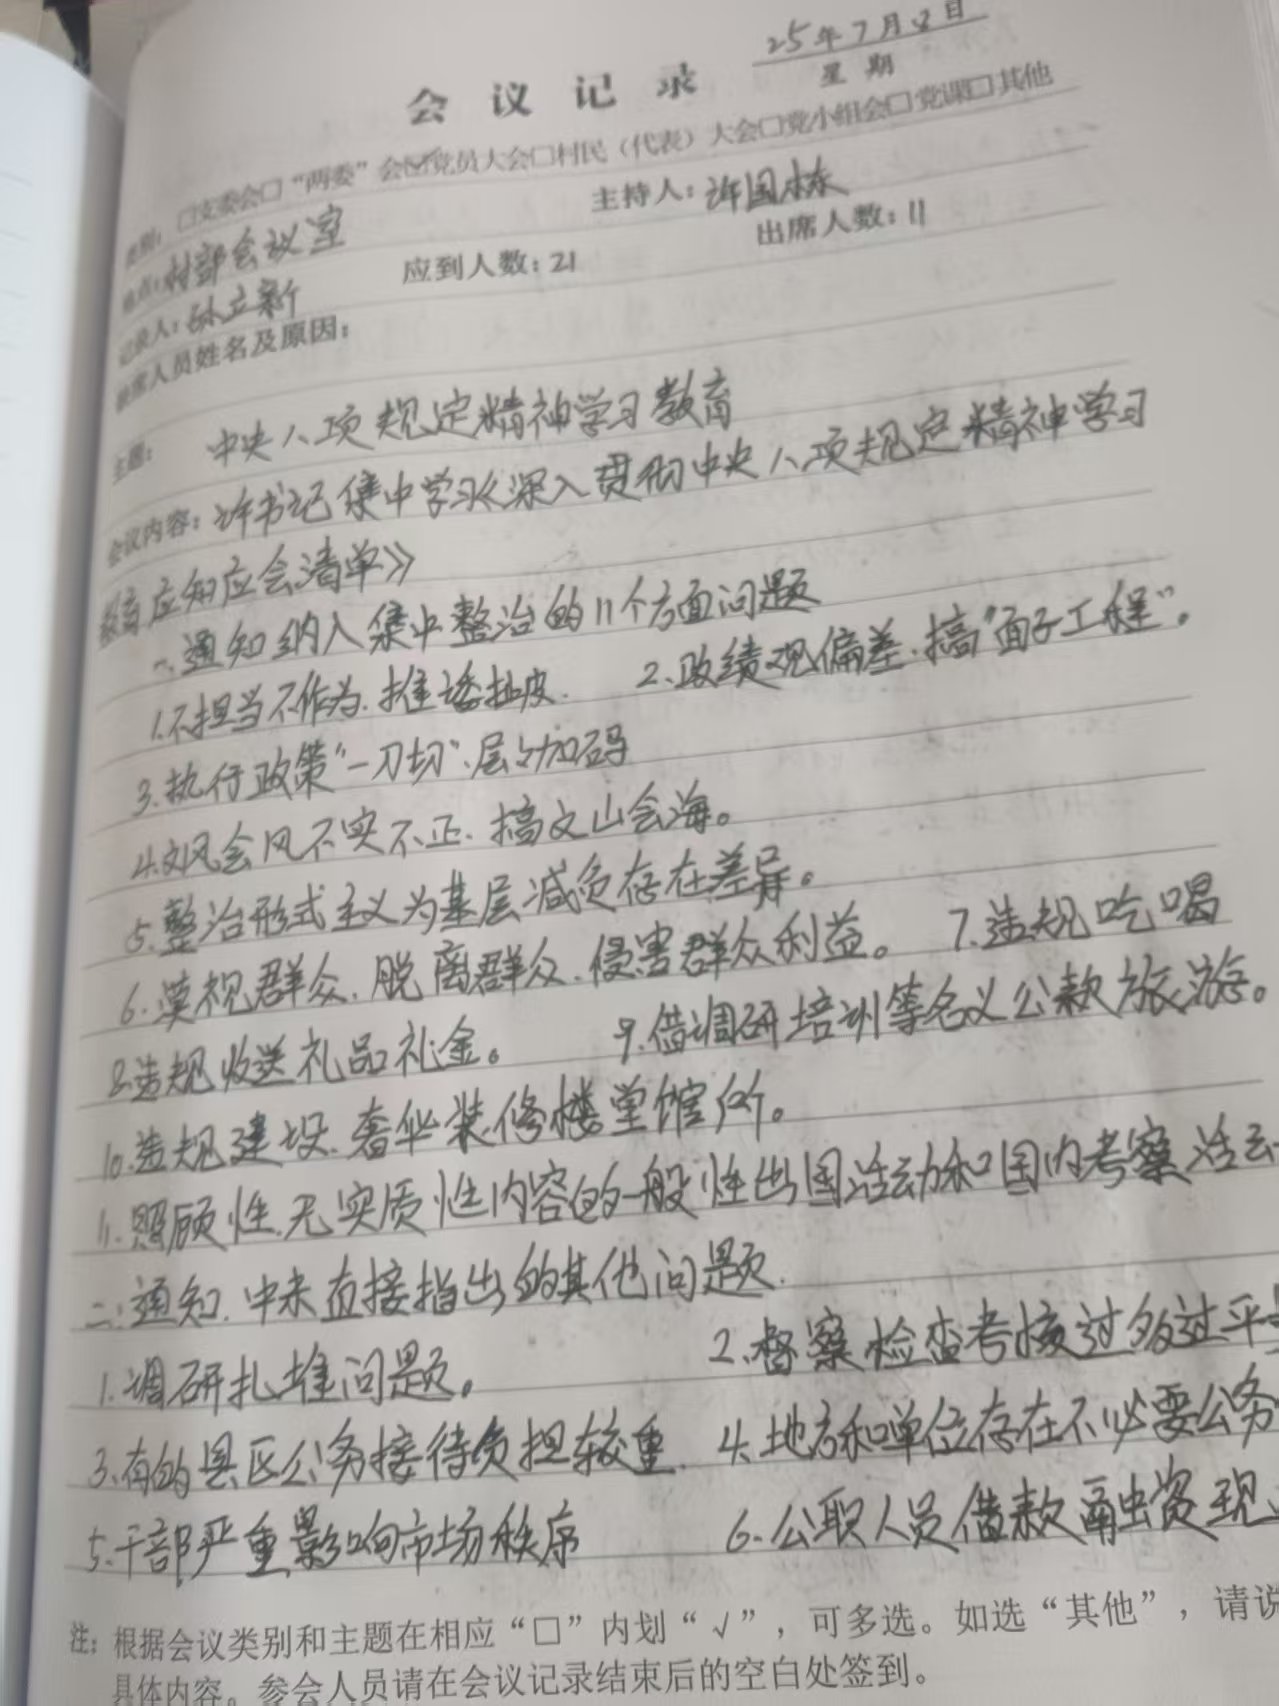 25年7月2日
会 议 记 录
星 期
类别：□支委会□“两委”会☑党员大会□村民（代表）大会□党小组会□党课□其他
地点：村部会议室 主持人：许国栋
记录人：孙立新 应到人数：21 出席人数：11
缺席人员姓名及原因：
主题： 中央八项规定精神学习教育
会议内容：许书记集中学习《深入贯彻中央八项规定精神学习
教育应知应会清单》
一、通知纳入集中整治的11个方面问题
1.不担当不作为、推诿扯皮. 2.政绩观偏差、搞“面子工程”。
3.执行政策“一刀切”、层层加码
4.文风会风不实不正、搞文山会海。
5.整治形式主义为基层减负存在差异。
6.漠视群众、脱离群众、侵害群众利益。 7.违规吃喝
8.违规收送礼品礼金。 9.借调研培训等名义公款旅游。
10.违规建设、奢华装修楼堂馆所。
11.照顾性、无实质性内容的一般性出国活动和国内考察活动
二：通知.中未直接指出的其他问题.
1.调研扎堆问题。 2.督察检查考核过多过
3.有的县区公务接待负担较重. 4.地方和单位存在不必要公务
5.干部严重影响市场秩序 6.公职人员借款融资现
注：根据会议类别和主题在相应“□”内划“√”，可多选。如选“其他”，请说
具体内容。参会人员请在会议记录结束后的空白处签到。